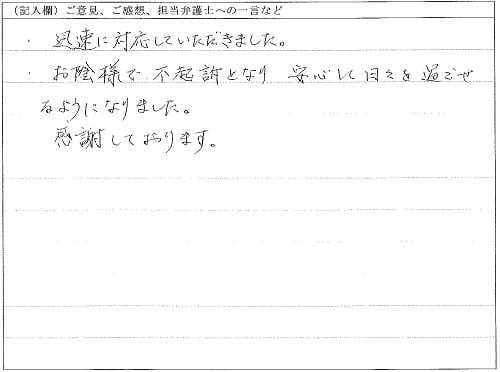 (記入欄) ご意見、ご感想、担当弁護士への一言など
・ 迅速に対応していただきました。
・ お陰様で 不起訴となり 安心して日々を過ごせ
るようになりました。
感謝しております。